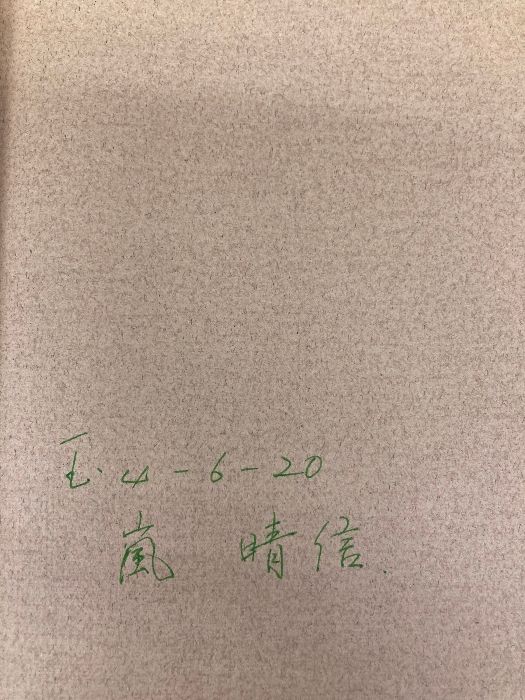 4-6-20
嵐 晴信.